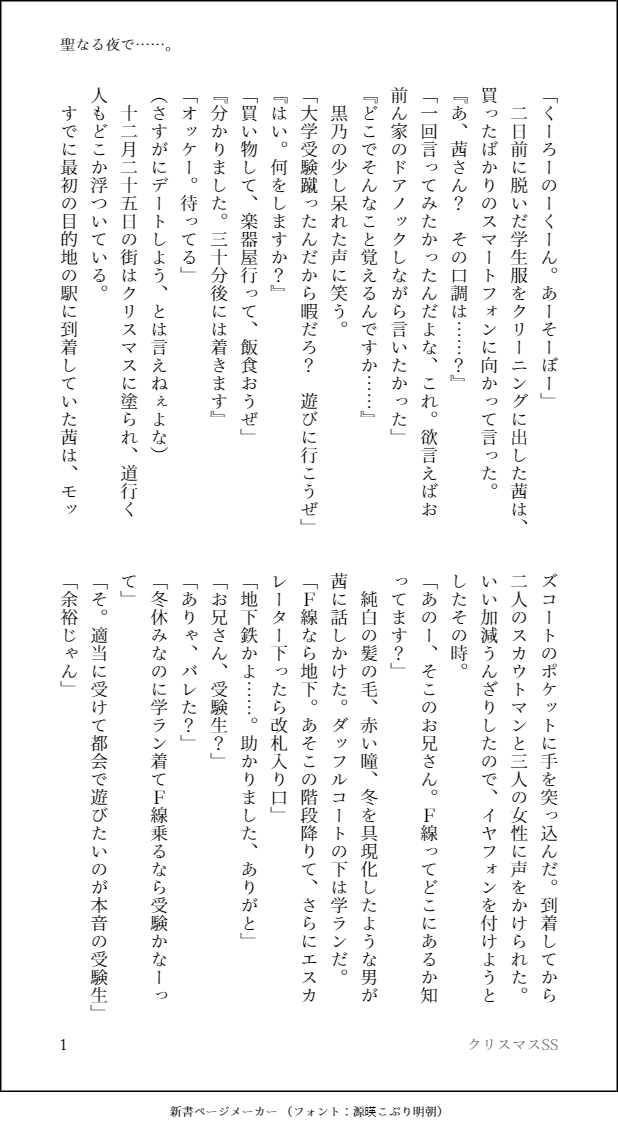 聖なる夜で……。
「くーろーのーくーん。あーそーぼー」
　二日前に脱いだ学生服をクリーニングに出した茜は、
買ったばかりのスマートフォンに向かって言った。
『あ、茜さん？　その口調は……？』
「一回言ってみたかったんだよな、これ。欲言えばお
前ん家のドアノックしながら言いたかった」
『どこでそんなこと覚えるんですか……』
　黒乃の少し呆れた声に笑う。
「大学受験蹴ったんだから暇だろ？　遊びに行こうぜ」
『はい。何をしますか？』
「買い物して、楽器屋行って、飯食おうぜ」
『分かりました。三十分後には着きます』
「オッケー。待ってる」
（さすがにデートしよう、とは言えねぇよな）
　十二月二十五日の街はクリスマスに塗られ、道行く
人もどこか浮ついている。
　すでに最初の目的地の駅に到着していた茜は、モッ
ズコートのポケットに手を突っ込んだ。到着してから
二人のスカウトマンと三人の女性に声をかけられた。
いい加減うんざりしたので、イヤフォンを付けようと
したその時。
「あのー、そこのお兄さん。Ｆ線ってどこにあるか知
ってます？」
　純白の髪の毛、赤い瞳、冬を具現化したような男が
茜に話しかけた。ダッフルコートの下は学ランだ。
「Ｆ線なら地下。あそこの階段降りて、さらにエスカ
レーター下ったら改札入り口」
「地下鉄かよ……。助かりました、ありがと」
「お兄さん、受験生？」
「ありゃ、バレた？」
「冬休みなのに学ラン着てＦ線乗るなら受験かなーっ
て」
「そ。適当に受けて都会で遊びたいのが本音の受験生」
「余裕じゃん」
1
クリスマスSS
新書ページメーカー（フォント：源暎こぶり明朝）